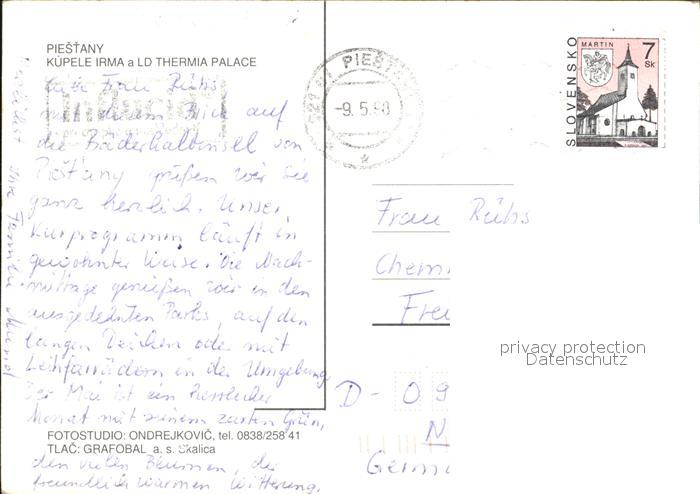 PIEŠŤANY
KÚPELE IRMA a LD THERMIA PALACE
Liebe Frau Rühs
mit diesem Blick auf
die Bäderhalbinsel von
Piešťany grüßen wir Sie
ganz herzlich. Unser
Kurprogramm läuft in
gewohnter Weise. Die Nach-
mittage genießen wir in den
ausgedehnten Parks, auf den
langen Deichen oder mit
Leihfahrrädern in der Umgebung.
Der Mai ist ein herrlicher
Monat mit seinem zarten Grün,
FOTOSTUDIO: ONDREJKOVIČ, tel. 0838/258 41
TLAČ: GRAFOBAL a. s. Skalica
den vielen Blumen, der
freundlich warmen Witterung.
Ihre Familie
PIEŠŤ
-9.5.98
SLOVENSKO
MARTIN
7
Sk
Frau Rühs
Chem
Frei
privacy protection
Datenschutz
D- 09
N
Germ